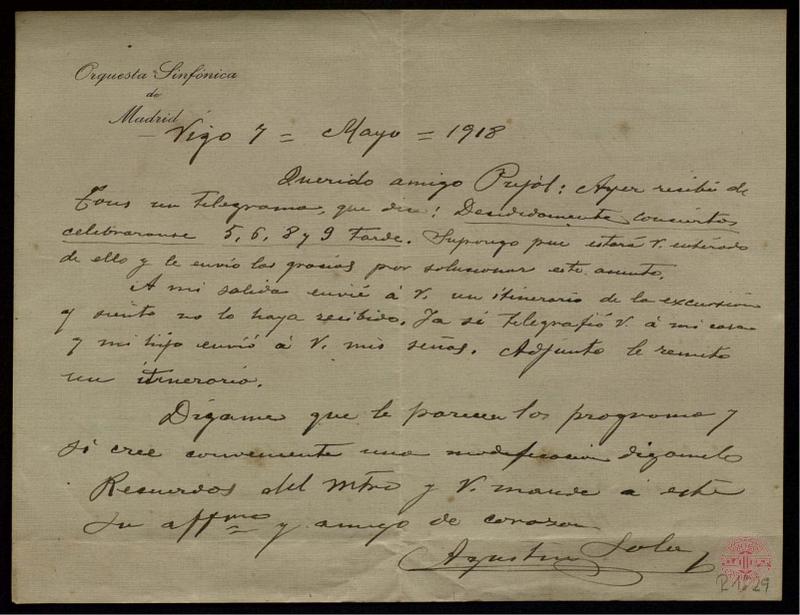 Orquesta Sinfónica
de
Madrid
Vigo 7 = Mayo = 1918
Querido amigo Pujol: Ayer recibí de
Tous un telegrama, que dice: Decididamente conciertos
celebraranse 5, 6, 8 y 9 tarde. Supongo que estará V. enterado
de ello y le envío las gracias por solucionar este asunto.
A mi salida envié á V. un itinerario de la excursión
y siento no lo haya recibido. Ya sé telegrafió V. á mi casa
y mi hijo envió á V. mis señas. Adjunto le remito
un itinerario.
Digame que le parecen los programas y
si cree conveniente una modificacion digamelo
Recuerdos del Mtro y V. mande á este
su affmo y amigo de corazon
Agustin Soler